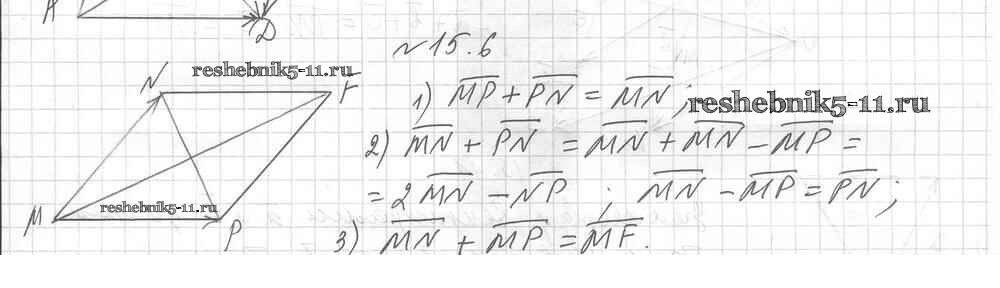 A
D
№15.6
reshebnik5-11.ru
N
F
1) MP + PN = MN ;
reshebnik5-11.ru
2) MN + PN = MN + MN - MP =
= 2 MN - NP ; MN - MP = PN ;
reshebnik5-11.ru
M
P
3) MN + MP = MF.